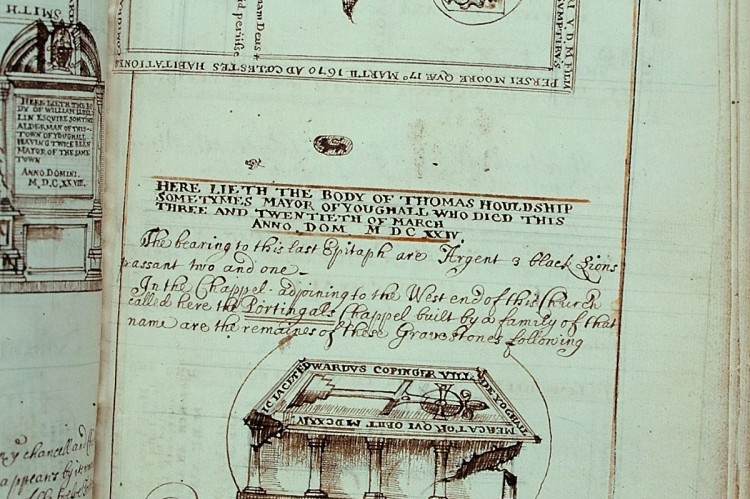 SMITH
HERE LIETH THE BO
DY OF WILLIAM LLEWEL
LIN ESQUIRE SOMTYME
ALDERMAN OF THIS
TOWN OF YOUGHALL
HAVING TWICE BEEN
MAYOR OF THE SAME
TOWN
ANNO DOMINI.
M, D, C, XX VIII.
PERSEI MOORE QVÆ 17º MARTII 1670 AD COELESTES HABITATIONES
HERE LIETH THE BODY OF THOMAS HOULDSHIP
SOMETYMES MAYOR OF YOUGHALL WHO DIED THIS
THREE AND TWENTIETH OF MARCH
ANNO . DOM. M DC XXIV.
The bearing to this last Epitaph are Argent 3 black Lions
passant two and one -
In the Chappel adjoining to the West end of this Church
called here the Portingals Chappel built by a family of that
name are the remaines of these Gravestones following
HIC IACET EDWARDVS COPINGER VILL
MERCATOR QVI OBIIT MDCXXIV